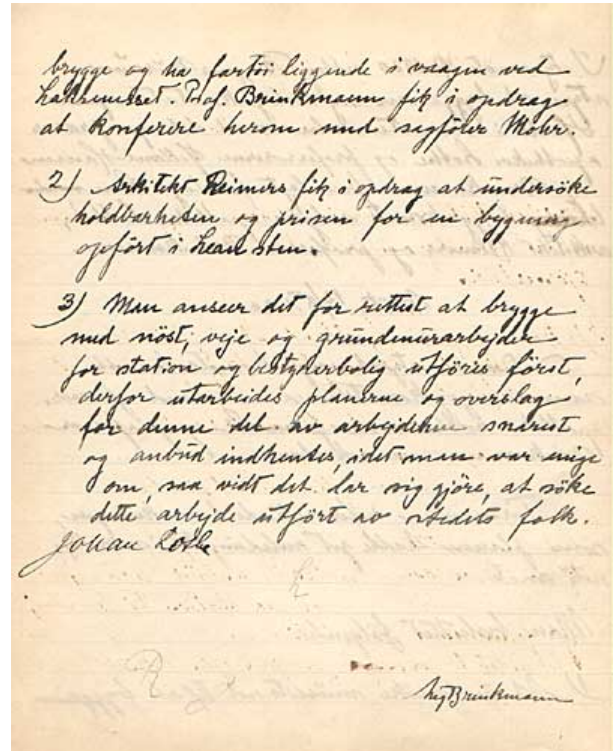 brygge og ha fartöi liggende i vaagen ved
Prof. Brinkmann fik i opdrag
at konferere herom med sagförer Mohr.
2) Arkitekt Reimers fik i opdrag at undersöke
holdbarheten og prisen for en bygning
opfört i Lean sten.
3) Man anseer det for rettest at brygge
med nöst, veje og grundmurarbejder
for station og bestyrerbolig utföres först,
derfor utarbeides planerne og overslag
for denne del av arbejderne snarest
og anbud indhentes, idet man var enige
om, saa vidt det lar sig gjöre, at söke
dette arbejde utfört av stedets folk.
Johan Lothe
Aug Brinkmann